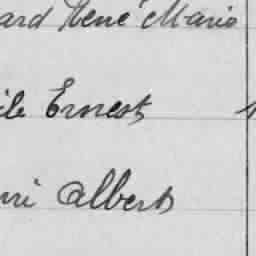 ard René Marie
ile Ernest
nri Albert